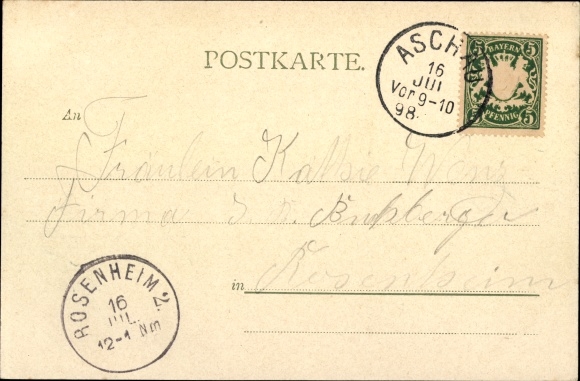 POSTKARTE.
ASCHAU
16
JUL
Vor 9-10
98.
5 BAYERN 5
5 PFENNIG 5
An
Fräulein Kathie
Firma
in Rosenheim
ROSENHEIM 2.
16
JUL.
12-1 Nm